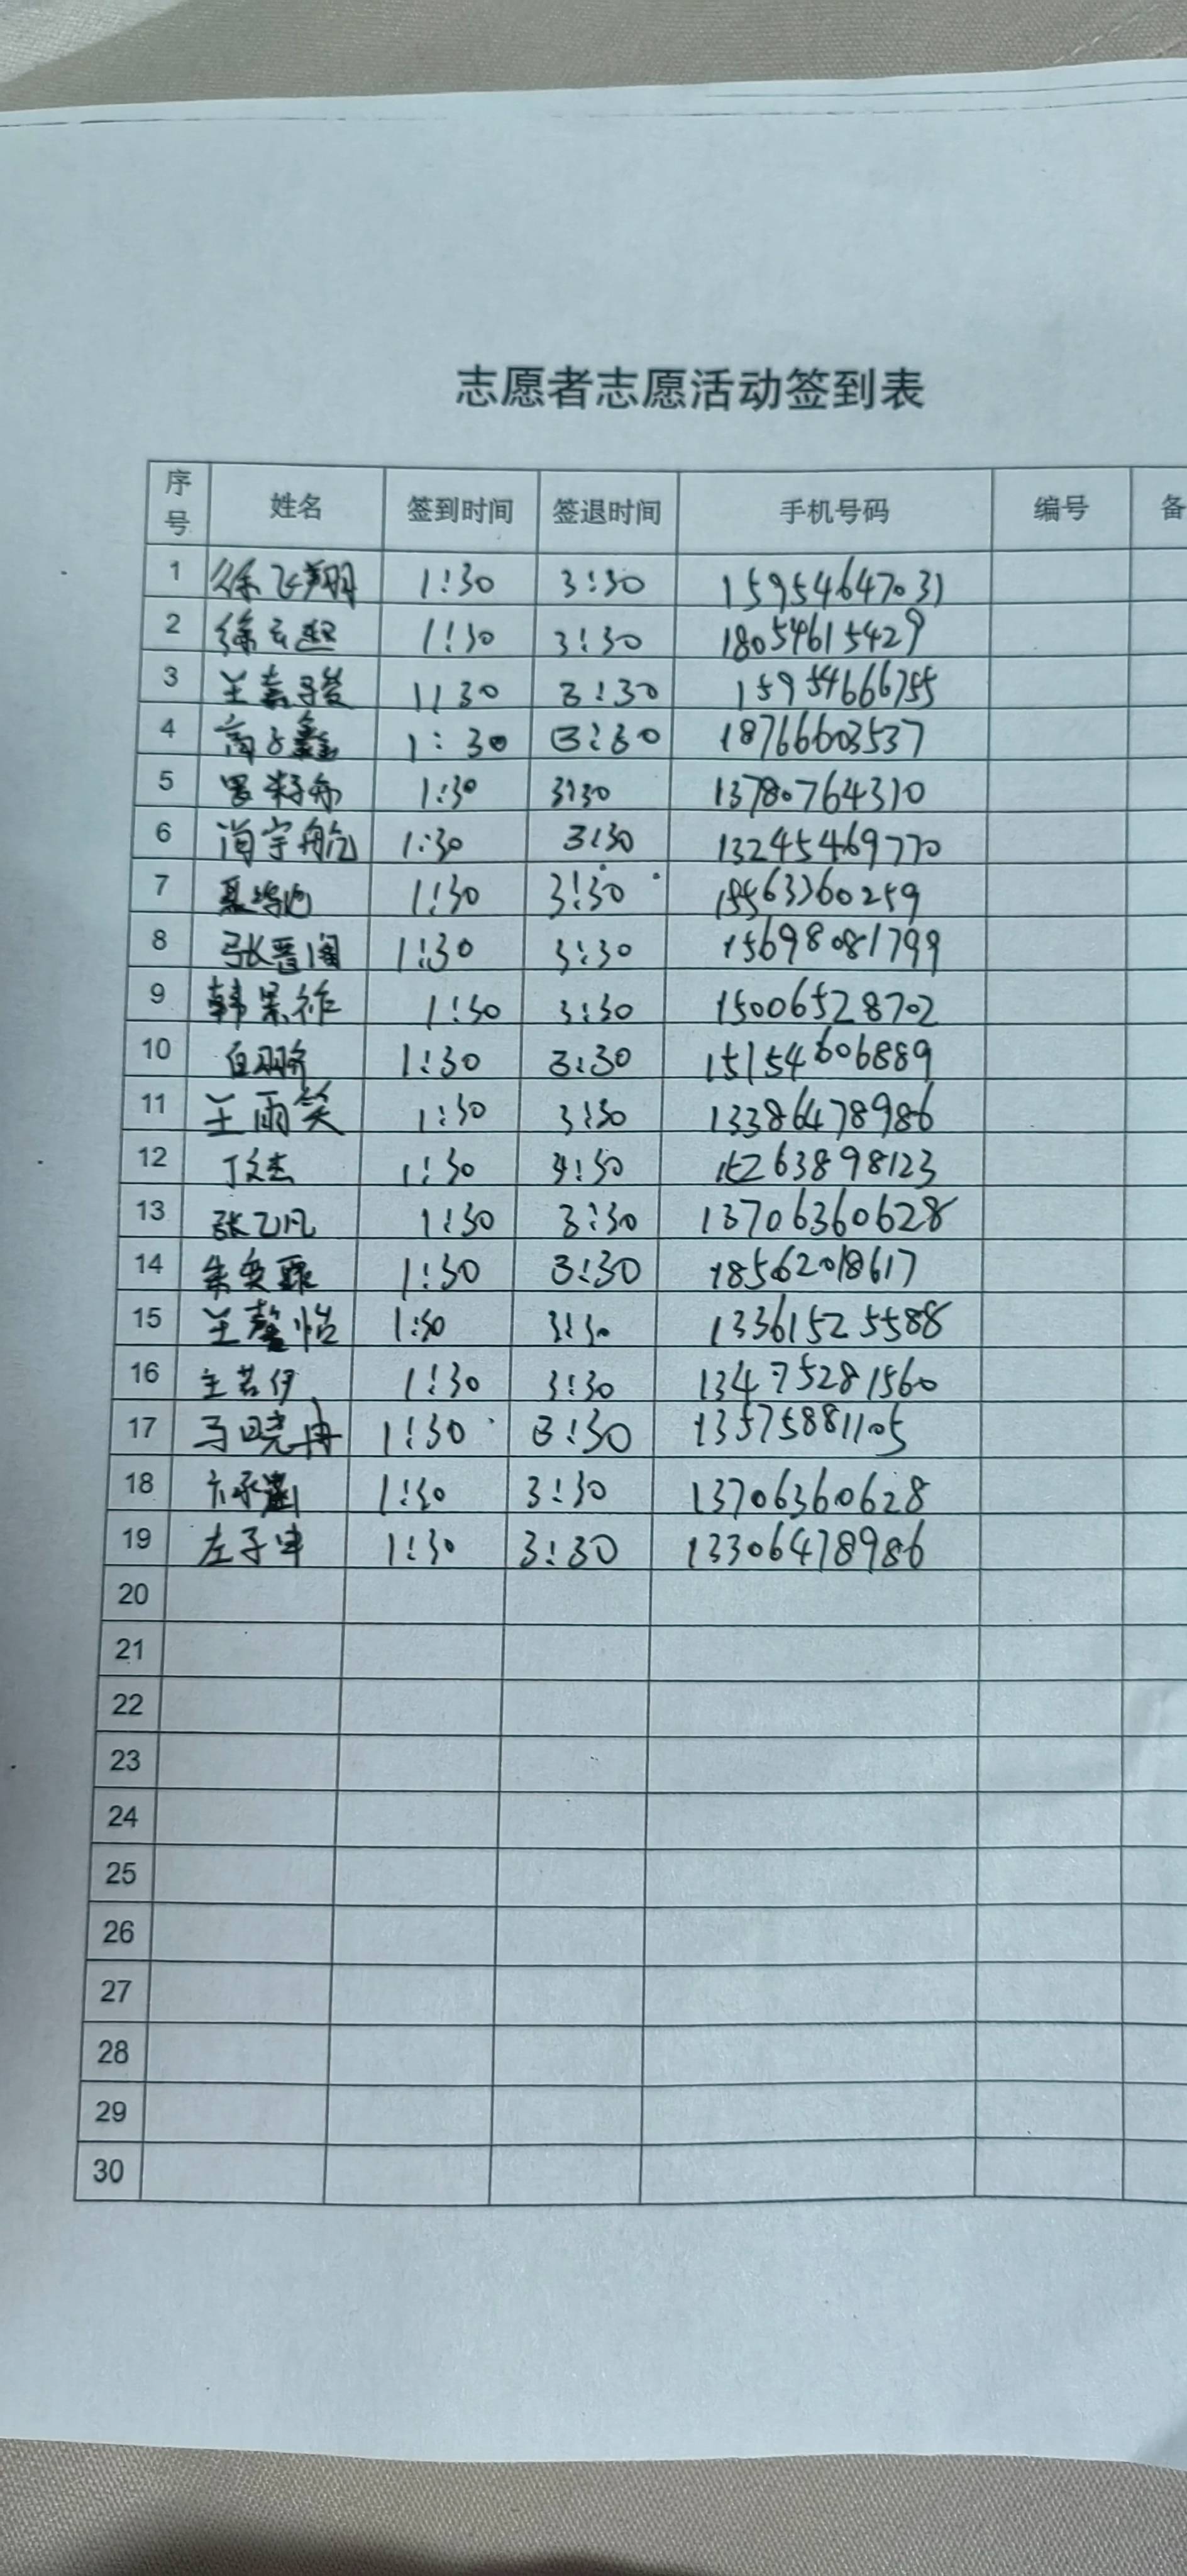 志愿者志愿活动签到表
序号 姓名 签到时间 签退时间 手机号码 编号 备
1 徐飞翔 1:30 3:30 15954647031
2 徐 1:30 3:30 18054615429
3 王嘉 1:30 3:30 15954666755
4 高子鑫 1:30 3:30 18766603537
5 1:30 3:30 13780764310
6 肖宇航 1:30 3:30 13245469770
7 1:30 3:30
8 张晋 1:30 3:30 15698081799
9 韩 1:30 3:30 15006528702
10 白 1:30 3:30 15154606889
11 王雨笑 1:30 3:30 13386478986
12 丁文杰 1:30 3:30 15263898123
13 张乙凡 1:30 3:30 13706360628
14 朱奕霖 1:30 3:30 18562018617
15 王馨怡 1:30 3:30 13361525588
16 王若伊 1:30 3:30 13475281560
17 马晓冉 1:30 3:30 13575881105
18 1:30 3:30 13706360628
19 左子申 1:30 3:30 13306478986
20
21
22
23
24
25
26
27
28
29
30